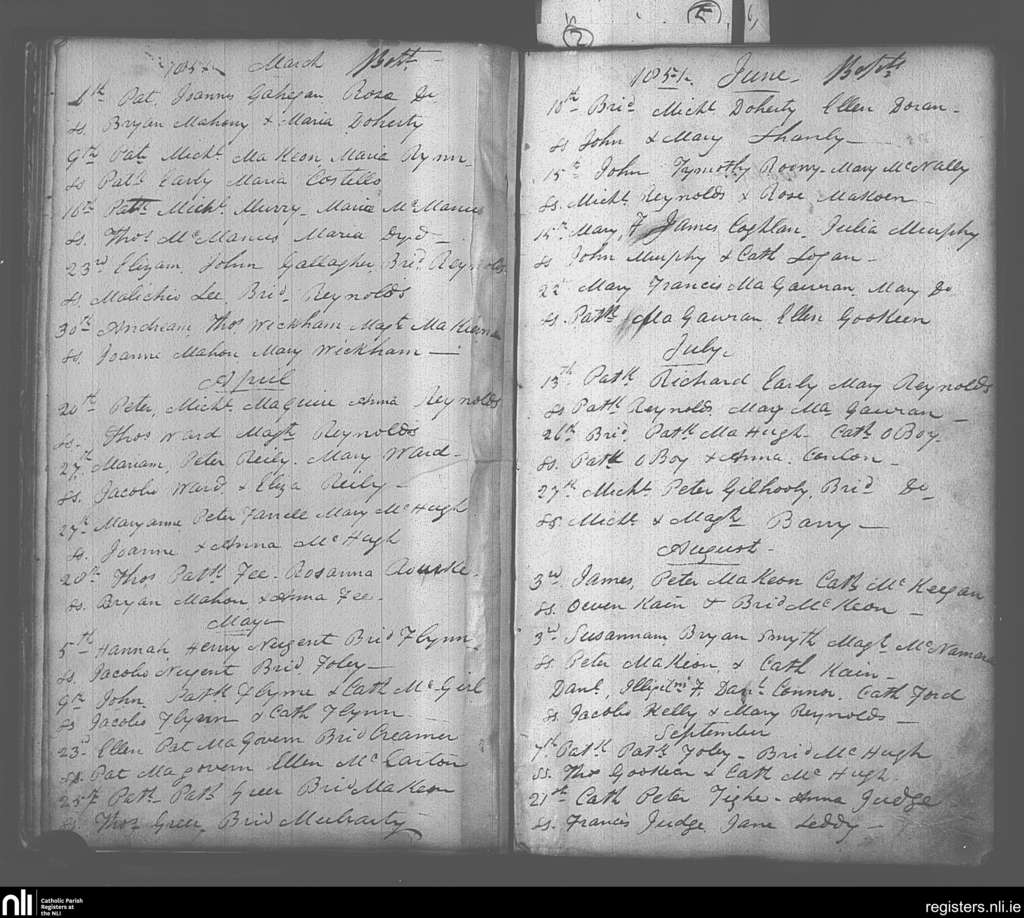 2
5
6,
1851. March Bapt.
4th Pat, Joannes Gahegan Rosa Do
Ss. Bryan Mahony & Maria Doherty
9th Pat. Michl. MaKeon Maria Rynn.
Ss Patk Early Maria Costello
16th Patk Michl. Murry. Maria McManus
Ss. Thos McManus Maria
23rd Elizam. John Gallagher, Brid. Reynolds.
Ss Malichio Lee, Brid. Reynolds
30th Andream, Thos Wickham Magt. MaKiernan
Ss. Joanne Mahon, Mary Wickham —
April
20th Peter, Michl. Maguire Anna Reynolds
Ss. Thos Ward Magt. Reynolds
27th Mariam, Peter Reily. Mary Ward-
Ss. Jacobo Ward, & Eliza Reily-
27th Maryanne, Peter Farrell Mary McHugh
Ss. Joanne & Anna McHugh
20th Thos Patk Fee. Rosanna Rourke.
Ss. Bryan Mahon, & Anna Fee.
May
5th Hannah Henry Nugent Brid Flynn
Ss. Jacobo Nugent Brid. Foley-
9th John, Patk Flynne & Cath McGirl
Ss Jacobo Flynn & Cath Flynn
23d Ellen Pat MaGovern Brid Creamer
Ss. Pat Magovern Ellen McCarton
25th Patk Patk Greer Brid MaKeon
Ss. Thos Greer, Brid
1851. June. Bapts
10th Brid Michl. Doherty Ellen Doran-
Ss John & Mary Shanly-
15th John Tymothy Roony- Mary McNally
Ss. Michl. Reynolds & Rose MaKoen-
15th Mary, F James Coghlan, Julia Murphy
Ss John Murphy & Cath Logan-
22d Mary Francis MaGauran, Mary Do
Ss. Patk MaGauran Ellen Gookeen
July.
13th. Patk Richard Early Mary Reynolds
Ss Patk Reynolds, Mary MaGauran-
26th Brid, Patk MaHugh- Cath OBoy.
Ss. Patk OBoy & Anna. Conlon-
27th Michl. Peter Gilhooly, Brid Do-
Ss Michl & Magt Barry-
August-
3rd, James, Peter MaKeon Cath McKeegan
Ss. Owen Kain & Brid McKeon-
3d Susannam, Bryan Smyth Magt McNamara
Ss. Peter MaKeon, & Cath Kain-
Danl, F. Danl. Connor, Cath Ford
Ss. Jacobo Kelly & Mary Reynolds-
September
7th Patk Patk Foley- Brid McHugh
Ss. Tho Gookeen & Cath McHugh.
21st Cath Peter Tighe- Anna Judge
Ss. Francis Judge Jane Leddy-
nli
Catholic Parish
Registers at
the NLI
registers.nli.ie